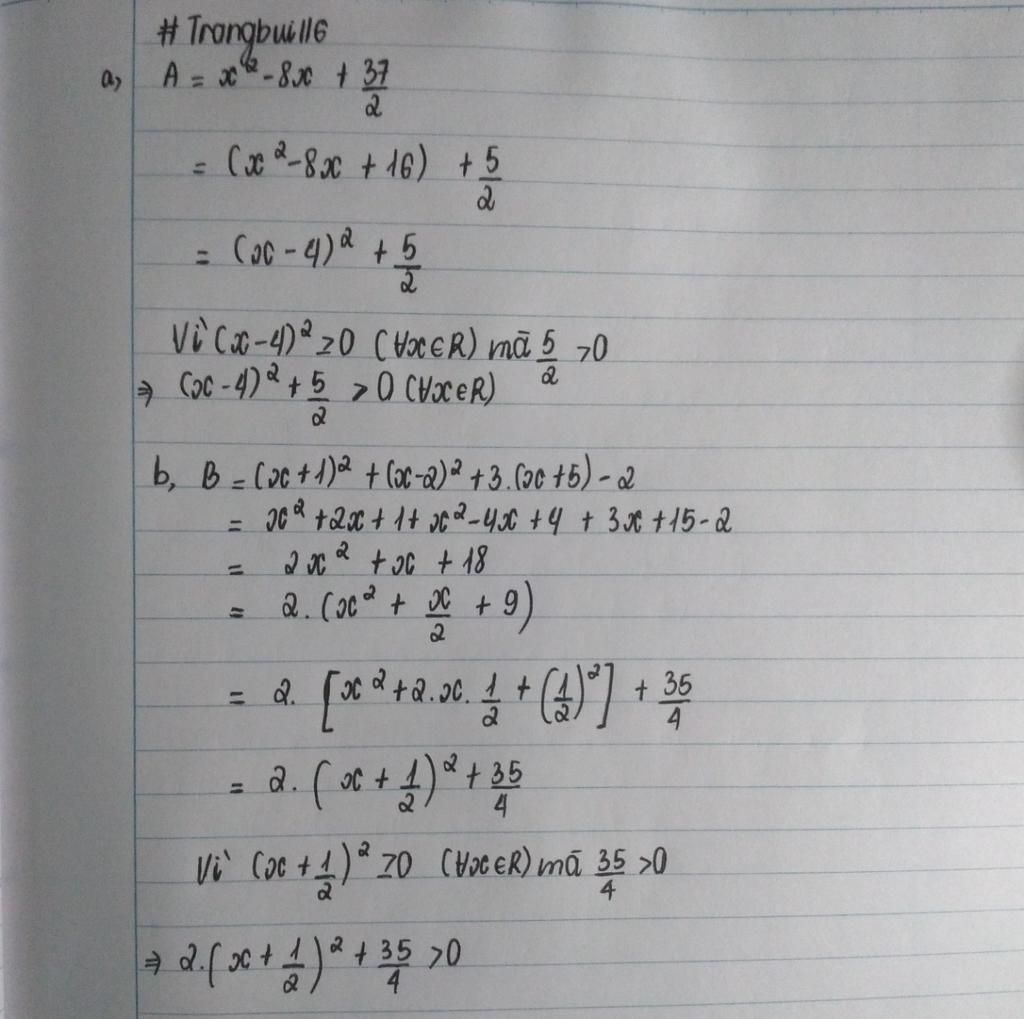 # Trangbui116
a, A = x² - 8x + 37/2
= (x² - 8x + 16) + 5/2
= (x - 4)² + 5/2
Vì (x - 4)² ≥ 0 (∀x∈R) mã 5/2 > 0
⇒ (x - 4)² + 5/2 > 0 (∀x∈R)
b, B = (x + 1)² + (x - 2)² + 3.(x + 5) - 2
= x² + 2x + 1 + x² - 4x + 4 + 3x + 15 - 2
= 2x² + x + 18
= 2.(x² + x/2 + 9)
= 2. [x² + 2.x. 1/2 + (1/2)²] + 35/4
= 2. (x + 1/2)² + 35/4
Vì (x + 1/2)² ≥ 0 (∀x∈R) mã 35/4 > 0
⇒ 2.(x + 1/2)² + 35/4 > 0